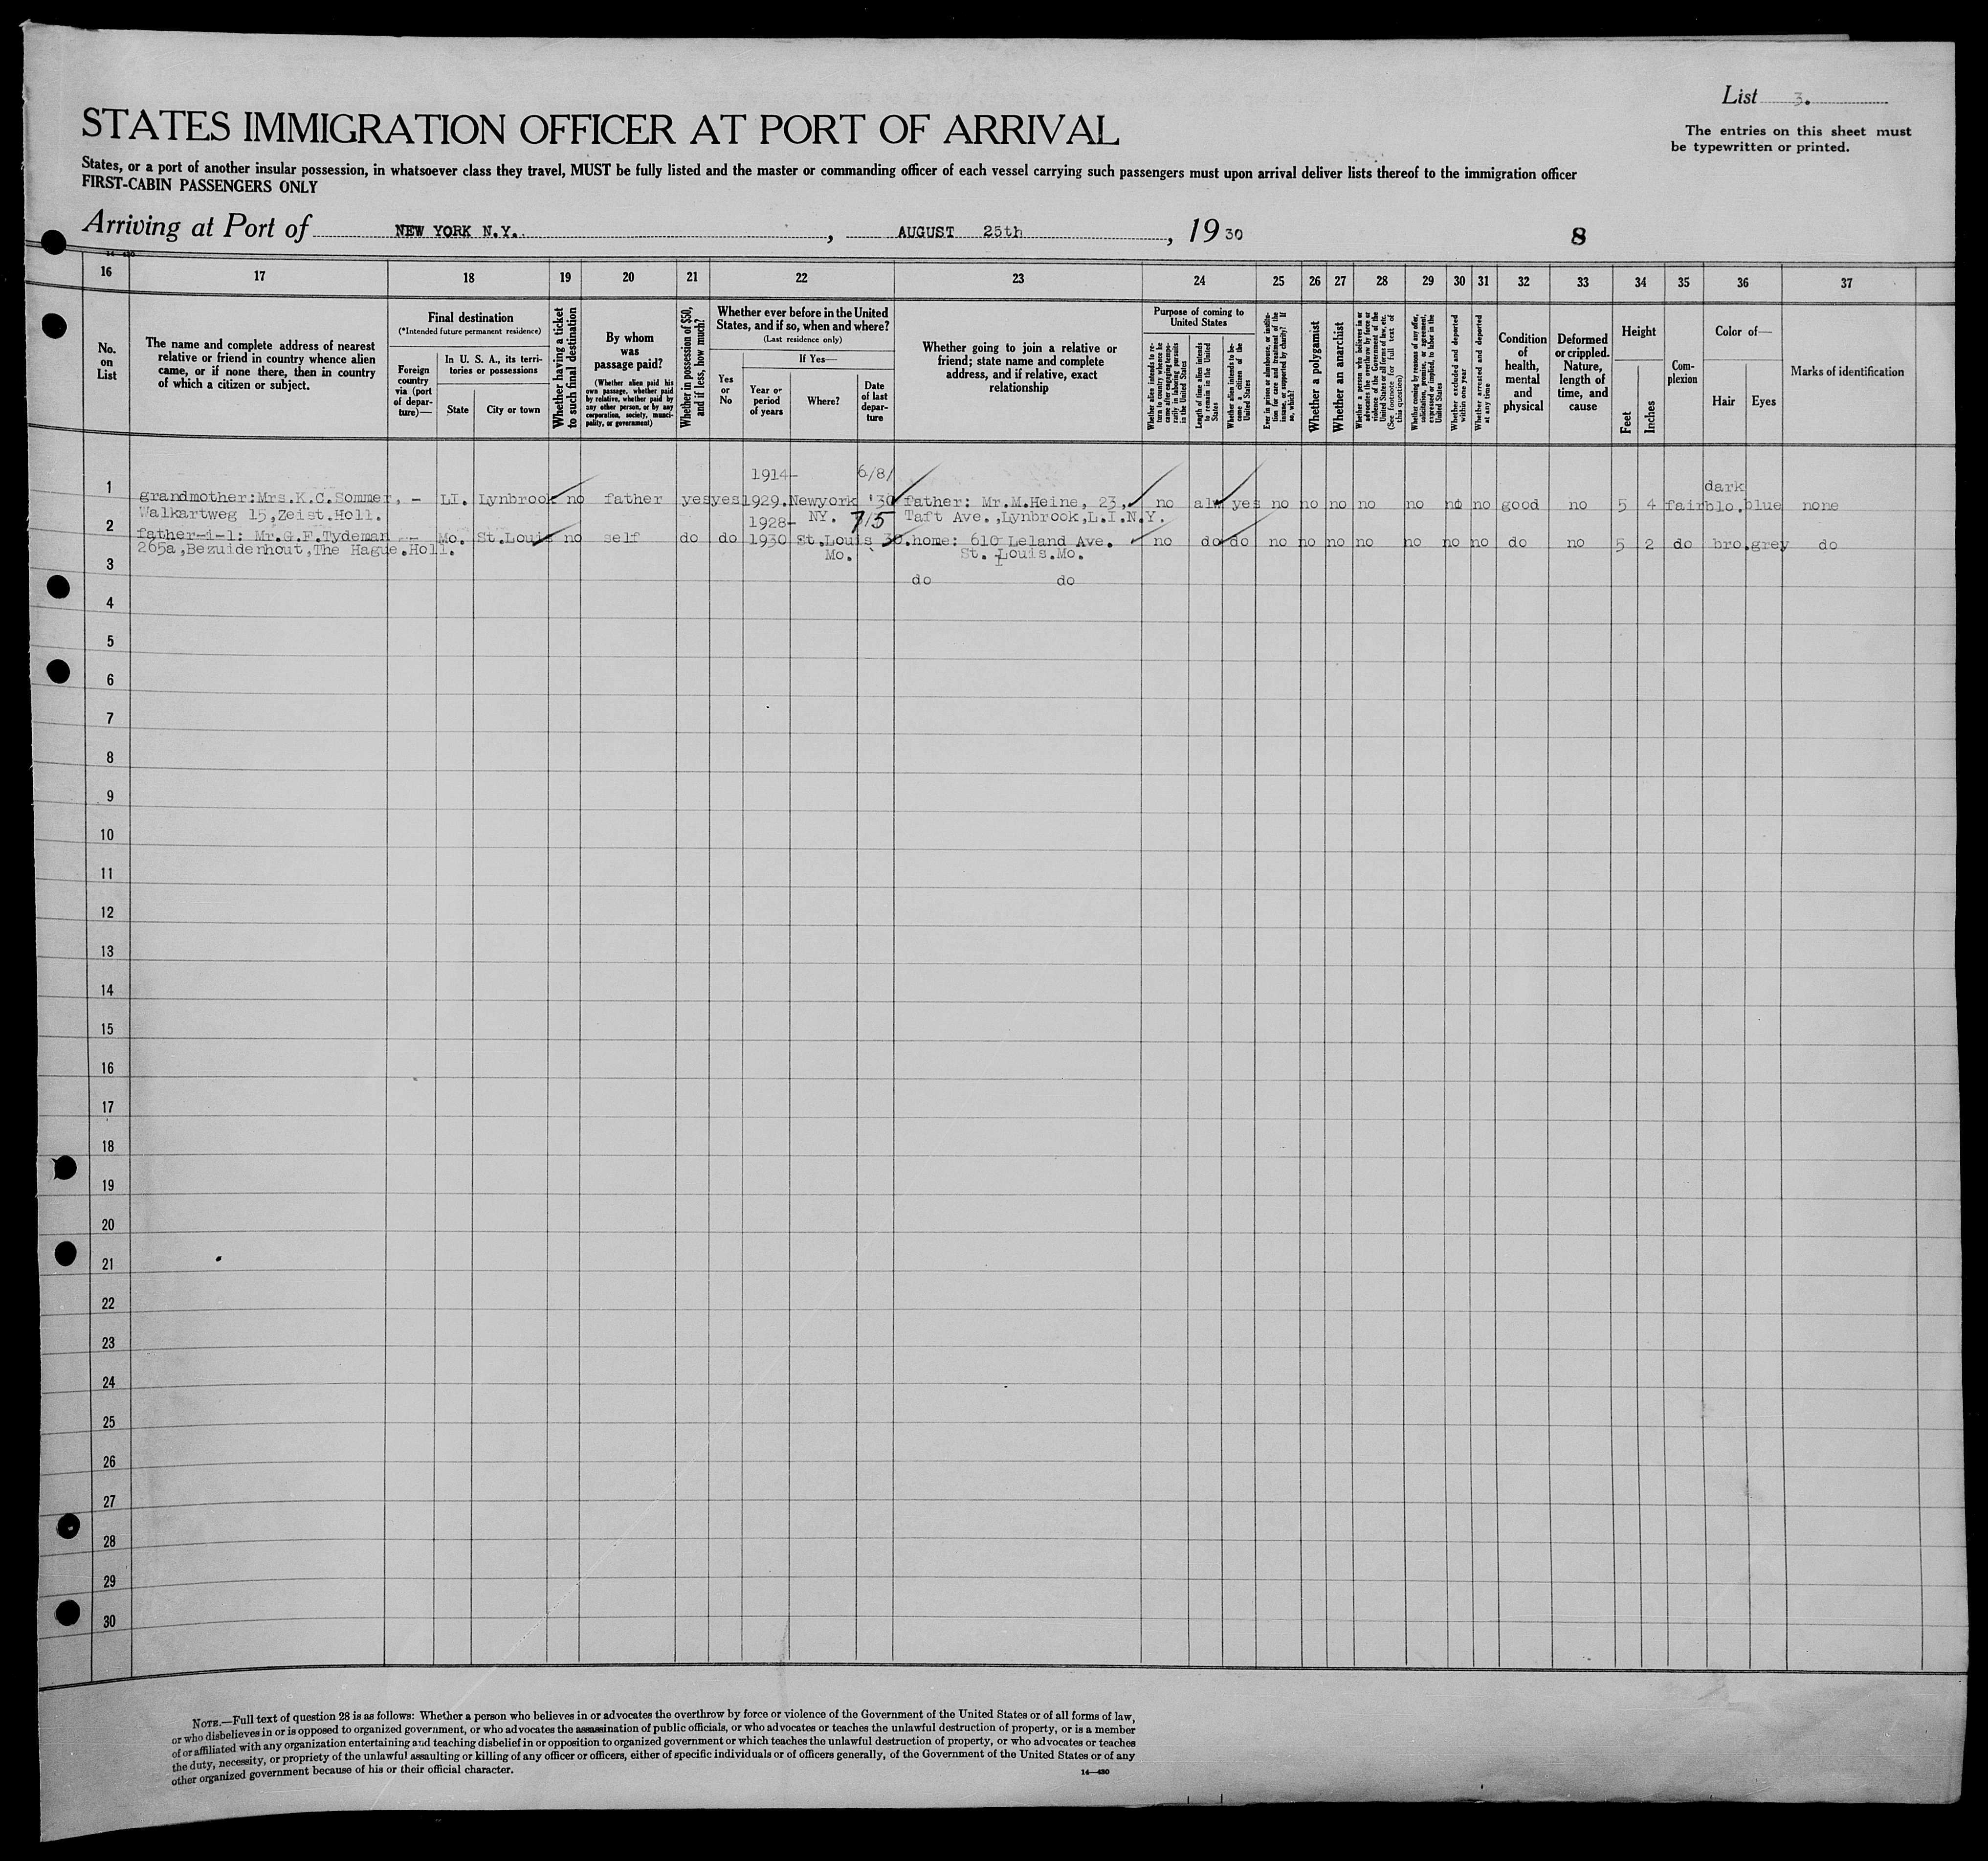 List 3.
The entries on this sheet must
be typewritten or printed.
STATES IMMIGRATION OFFICER AT PORT OF ARRIVAL
States, or a port of another insular possession, in whatsoever class they travel, MUST be fully listed and the master or commanding officer of each vessel carrying such passengers must upon arrival deliver lists thereof to the immigration officer
FIRST-CABIN PASSENGERS ONLY
Arriving at Port of NEW YORK N.Y. , AUGUST 25th , 19 30
8
16 17 18 19 20 21 22 23 24 25 26 27 28 29 30 31 32 33 34 35 36 37
No.
on
List
The name and complete address of nearest
relative or friend in country whence alien
came, or if none there, then in country
of which a citizen or subject.
Final destination
(*Intended future permanent residence)
Foreign
country
via (port
of depar-
ture)—
In U. S. A., its terri-
tories or possessions
State
City or town
Whether having a ticket
to such final destination
By whom
was
passage paid?
(Whether alien paid his
own passage, whether paid
by relative, whether paid by
any other person, or by any
corporation, society, munici-
pality, or government)
Whether in possession of $50,
and if less, how much?
Whether ever before in the United
States, and if so, when and where?
(Last residence only)
Yes
or
No
If Yes—
Year or
period
of years
Where?
Date
of last
depar-
ture
Whether going to join a relative or
friend; state name and complete
address, and if relative, exact
relationship
Purpose of coming to
United States
Whether alien intends to re-
turn to country whence he
came after engaging tempo-
rarily in laboring pursuits
in the United States
Length of time alien intends
to remain in the United
States
Whether alien intends to be-
come a citizen of the
United States
Ever in prison or almshouse, or institu-
tion for care and treatment of the
insane, or supported by charity? If
so, which?
Whether a polygamist
Whether an anarchist
Whether a person who believes in or
advocates the overthrow by force or
violence of the Government of the
United States or all forms of law, etc.
(See footnote for full text of
this question)
Whether coming by reasons of any offer,
solicitation, promise, or agreement,
expressed or implied, to labor in the
United States
Whether excluded and deported
within one year
Whether arrested and deported
at any time
Condition
of
health,
mental
and
physical
Deformed
or crippled.
Nature,
length of
time, and
cause
Height
Feet
Inches
Com-
plexion
Color of—
Hair
Eyes
Marks of identification
1914- 6/8/
dark
1 grandmother:Mrs.K.C.Sommer, - LI. Lynbrook no father yes yes 1929. Newyork '30 father: Mr.M.Heine, 23, no alw yes no no no no no no no good no 5 4 fair blo. blue none
Walkartweg 15,Zeist.Holl. 1928- NY. 7/5 Taft Ave.,Lynbrook,L.I.N.Y.
2 father-i-l: Mr.G.F.Tydeman -- Mo. St.Louis no self do do 1930 St.Louis 30. home: 610 Leland Ave. no do do no no no no no no no do no 5 2 do bro. grey do
265a,Bezuidenhout,The Hague.Holl. Mo. St. Louis.Mo.
3
do do
4
5
6
7
8
9
10
11
12
13
14
15
16
17
18
19
20
21
22
23
24
25
26
27
28
29
30
NOTE.—Full text of question 28 is as follows: Whether a person who believes in or advocates the overthrow by force or violence of the Government of the United States or of all forms of law,
or who disbelieves in or is opposed to organized government, or who advocates the assassination of public officials, or who advocates or teaches the unlawful destruction of property, or is a member
of or affiliated with any organization entertaining and teaching disbelief in or opposition to organized government or which teaches the unlawful destruction of property, or who advocates or teaches
the duty, necessity, or propriety of the unlawful assaulting or killing of any officer or officers, either of specific individuals or of officers generally, of the Government of the United States or of any
other organized government because of his or their official character.
14—430